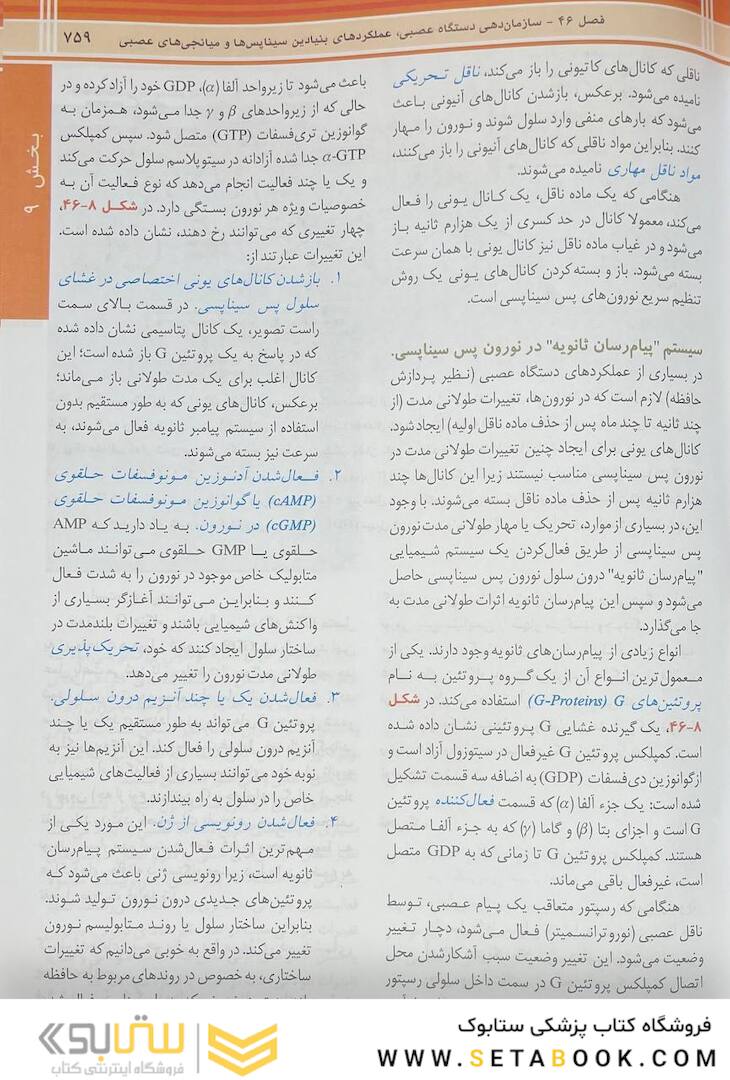 فصل ۴۶ - سازمان‌دهی دستگاه عصبی، عملکردهای بنیادین سیناپس‌ها و میانجی‌های عصبی
۷۵۹
بخش ۹
ناقلی که کانال‌های کاتیونی را باز می‌کند، ناقل تحریکی
نامیده می‌شود. برعکس، بازشدن کانال‌های آنیونی باعث
می‌شود که بارهای منفی وارد سلول شوند و نورون را مهار
کنند. بنابراین مواد ناقلی که کانال‌های آنیونی را باز می‌کنند،
مواد ناقل مهاری نامیده می‌شوند.
هنگامی که یک ماده ناقل، یک کانال یونی را فعال
می‌کند، معمولا کانال در حد کسری از یک هزارم ثانیه باز
می‌شود و در غیاب ماده ناقل نیز کانال یونی با همان سرعت
بسته می‌شود. باز و بسته کردن کانال‌های یونی یک روش
تنظیم سریع نورون‌های پس سیناپسی است.
سیستم "پیام‌رسان ثانویه" در نورون پس سیناپسی.
در بسیاری از عملکردهای دستگاه عصبی (نظیر پردازش
حافظه) لازم است که در نورون‌ها، تغییرات طولانی مدت (از
چند ثانیه تا چند ماه پس از حذف ماده ناقل اولیه) ایجاد شود.
کانال‌های یونی برای ایجاد چنین تغییرات طولانی مدت در
نورون پس سیناپسی مناسب نیستند زیرا این کانال‌ها چند
هزارم ثانیه پس از حذف ماده ناقل بسته می‌شوند. با وجود
این، در بسیاری از موارد، تحریک یا مهار طولانی مدت نورون
پس سیناپسی از طریق فعال‌کردن یک سیستم شیمیایی
"پیام‌رسان ثانویه" درون سلول نورون پس سیناپسی حاصل
می‌شود و سپس این پیام‌رسان ثانویه اثرات طولانی مدت به
جا می‌گذارد.
انواع زیادی از پیام‌رسان‌های ثانویه وجود دارند. یکی از
معمول ترین انواع آن از یک گروه پروتئین به نام
پروتئین‌های G (G-Proteins) استفاده می‌کند. در شکل
۴۶-۸، یک گیرنده غشایی G پروتئینی نشان داده شده
است. کمپلکس پروتئین G غیرفعال در سیتوزول آزاد است و
از گوانوزین دی‌فسفات (GDP) به اضافه سه قسمت تشکیل
شده است: یک جزء آلفا (α) که قسمت فعال‌کننده پروتئین
G است و اجزای بتا (β) و گاما (γ) که به جزء آلفا متصل
هستند. کمپلکس پروتئین G تا زمانی که به GDP متصل
است، غیرفعال باقی می‌ماند.
هنگامی که رسپتور متعاقب یک پیام عصبی، توسط
ناقل عصبی (نوروترانسمیتر) فعال می‌شود، دچار تغییر
وضعیت می‌شود. این تغییر وضعیت سبب آشکارشدن محل
اتصال کمپلکس پروتئین G در سمت داخل سلولی رسپتور
باعث می‌شود تا زیرواحد آلفا (α)، GDP خود را آزاد کرده و در
حالی که از زیرواحدهای β و γ جدا می‌شود، همزمان به
گوانوزین تری‌فسفات (GTP) متصل شود. سپس کمپلکس
α-GTP جدا شده آزادانه در سیتوپلاسم سلول حرکت می‌کند
و یک یا چند فعالیت انجام می‌دهد که نوع فعالیت آن به
خصوصیات ویژه هر نورون بستگی دارد. در شکل ۸-۴۶،
چهار تغییری که می‌توانند رخ دهند، نشان داده شده است.
این تغییرات عبارتند از:
۱. بازشدن کانال‌های یونی اختصاصی در غشای
سلول پس سیناپسی. در قسمت بالای سمت
راست تصویر، یک کانال پتاسیمی نشان داده شده
که در پاسخ به یک پروتئین G باز شده است؛ این
کانال اغلب برای یک مدت طولانی باز می‌ماند؛
برعکس، کانال‌های یونی که به طور مستقیم بدون
استفاده از سیستم پیامبر ثانویه فعال می‌شوند، به
سرعت نیز بسته می‌شوند.
۲. فعال‌شدن آدنوزین مونوفسفات حلقوی
(cAMP) یا گوانوزین مونوفسفات حلقوی
(cGMP) در نورون. به یاد دارید که AMP
حلقوی یا GMP حلقوی می‌توانند ماشین
متابولیک خاص موجود در نورون را به شدت فعال
کنند و بنابراین می‌توانند آغازگر بسیاری از
واکنش‌های شیمیایی باشند و تغییرات بلندمدت در
ساختار سلول ایجاد کنند که خود، تحریک‌پذیری
طولانی مدت نورون را تغییر می‌دهد.
۳. فعال‌شدن یک یا چند آنزیم درون سلولی.
پروتئین G می‌تواند به طور مستقیم یک یا چند
آنزیم درون سلولی را فعال کند. این آنزیم‌ها نیز به
نوبه خود می‌توانند بسیاری از فعالیت‌های شیمیایی
خاص را در سلول به راه بیندازند.
۴. فعال‌شدن رونویسی از ژن. این مورد یکی از
مهم‌ترین اثرات فعال‌شدن سیستم پیام‌رسان
ثانویه است، زیرا رونویسی ژنی باعث می‌شود که
پروتئین‌های جدیدی درون نورون تولید شوند.
بنابراین ساختار سلول یا روند متابولیسم نورون
تغییر می‌کند. در واقع به خوبی می‌دانیم که تغییرات
ساختاری، به خصوص در روندهای مربوط به حافظه
فروشگاه کتاب پزشکی ستابوک
WWW.SETABOOK.COM
ستابوک
فروشگاه اینترنتی کتاب